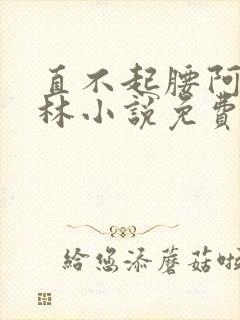 直不起腰阿
林小說免費
給您添蘑菇啦